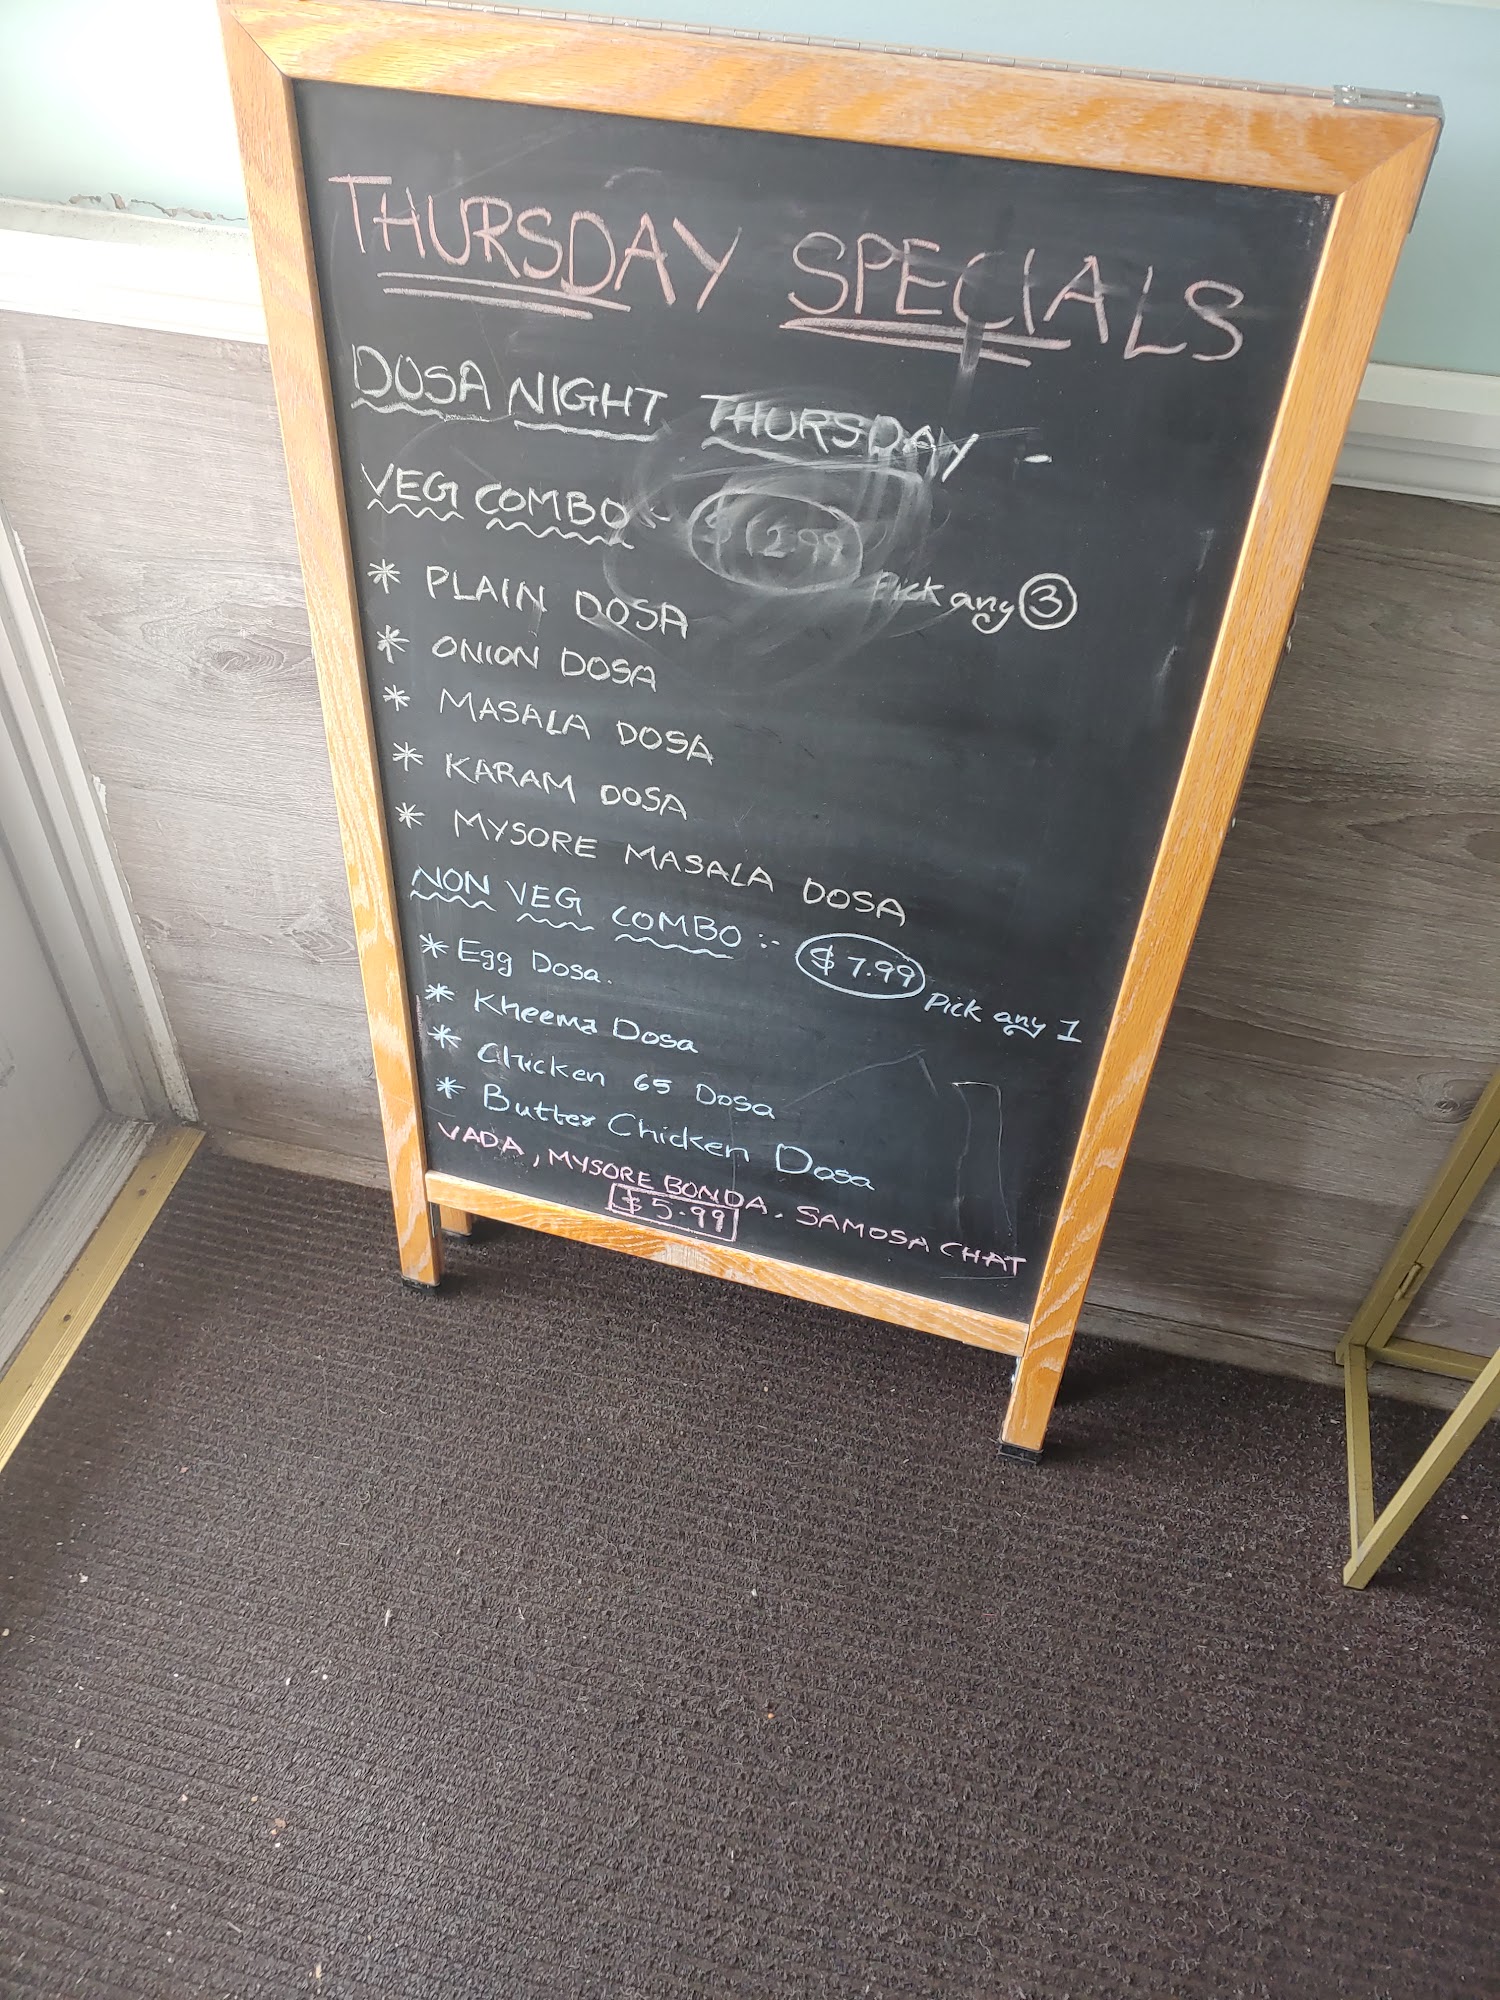 THURSDAY SPECIALS
DOSA NIGHT THURSDAY -
VEG COMBO - $12.99 Pick any 3
* PLAIN DOSA
* ONION DOSA
* MASALA DOSA
* KARAM DOSA
* MYSORE MASALA DOSA
NON VEG COMBO :- $7.99 Pick any 1
* Egg Dosa.
* Kheema Dosa
* Chicken 65 Dosa
* Butter Chicken Dosa
VADA, MYSORE BONDA. SAMOSA CHAT
$5.99